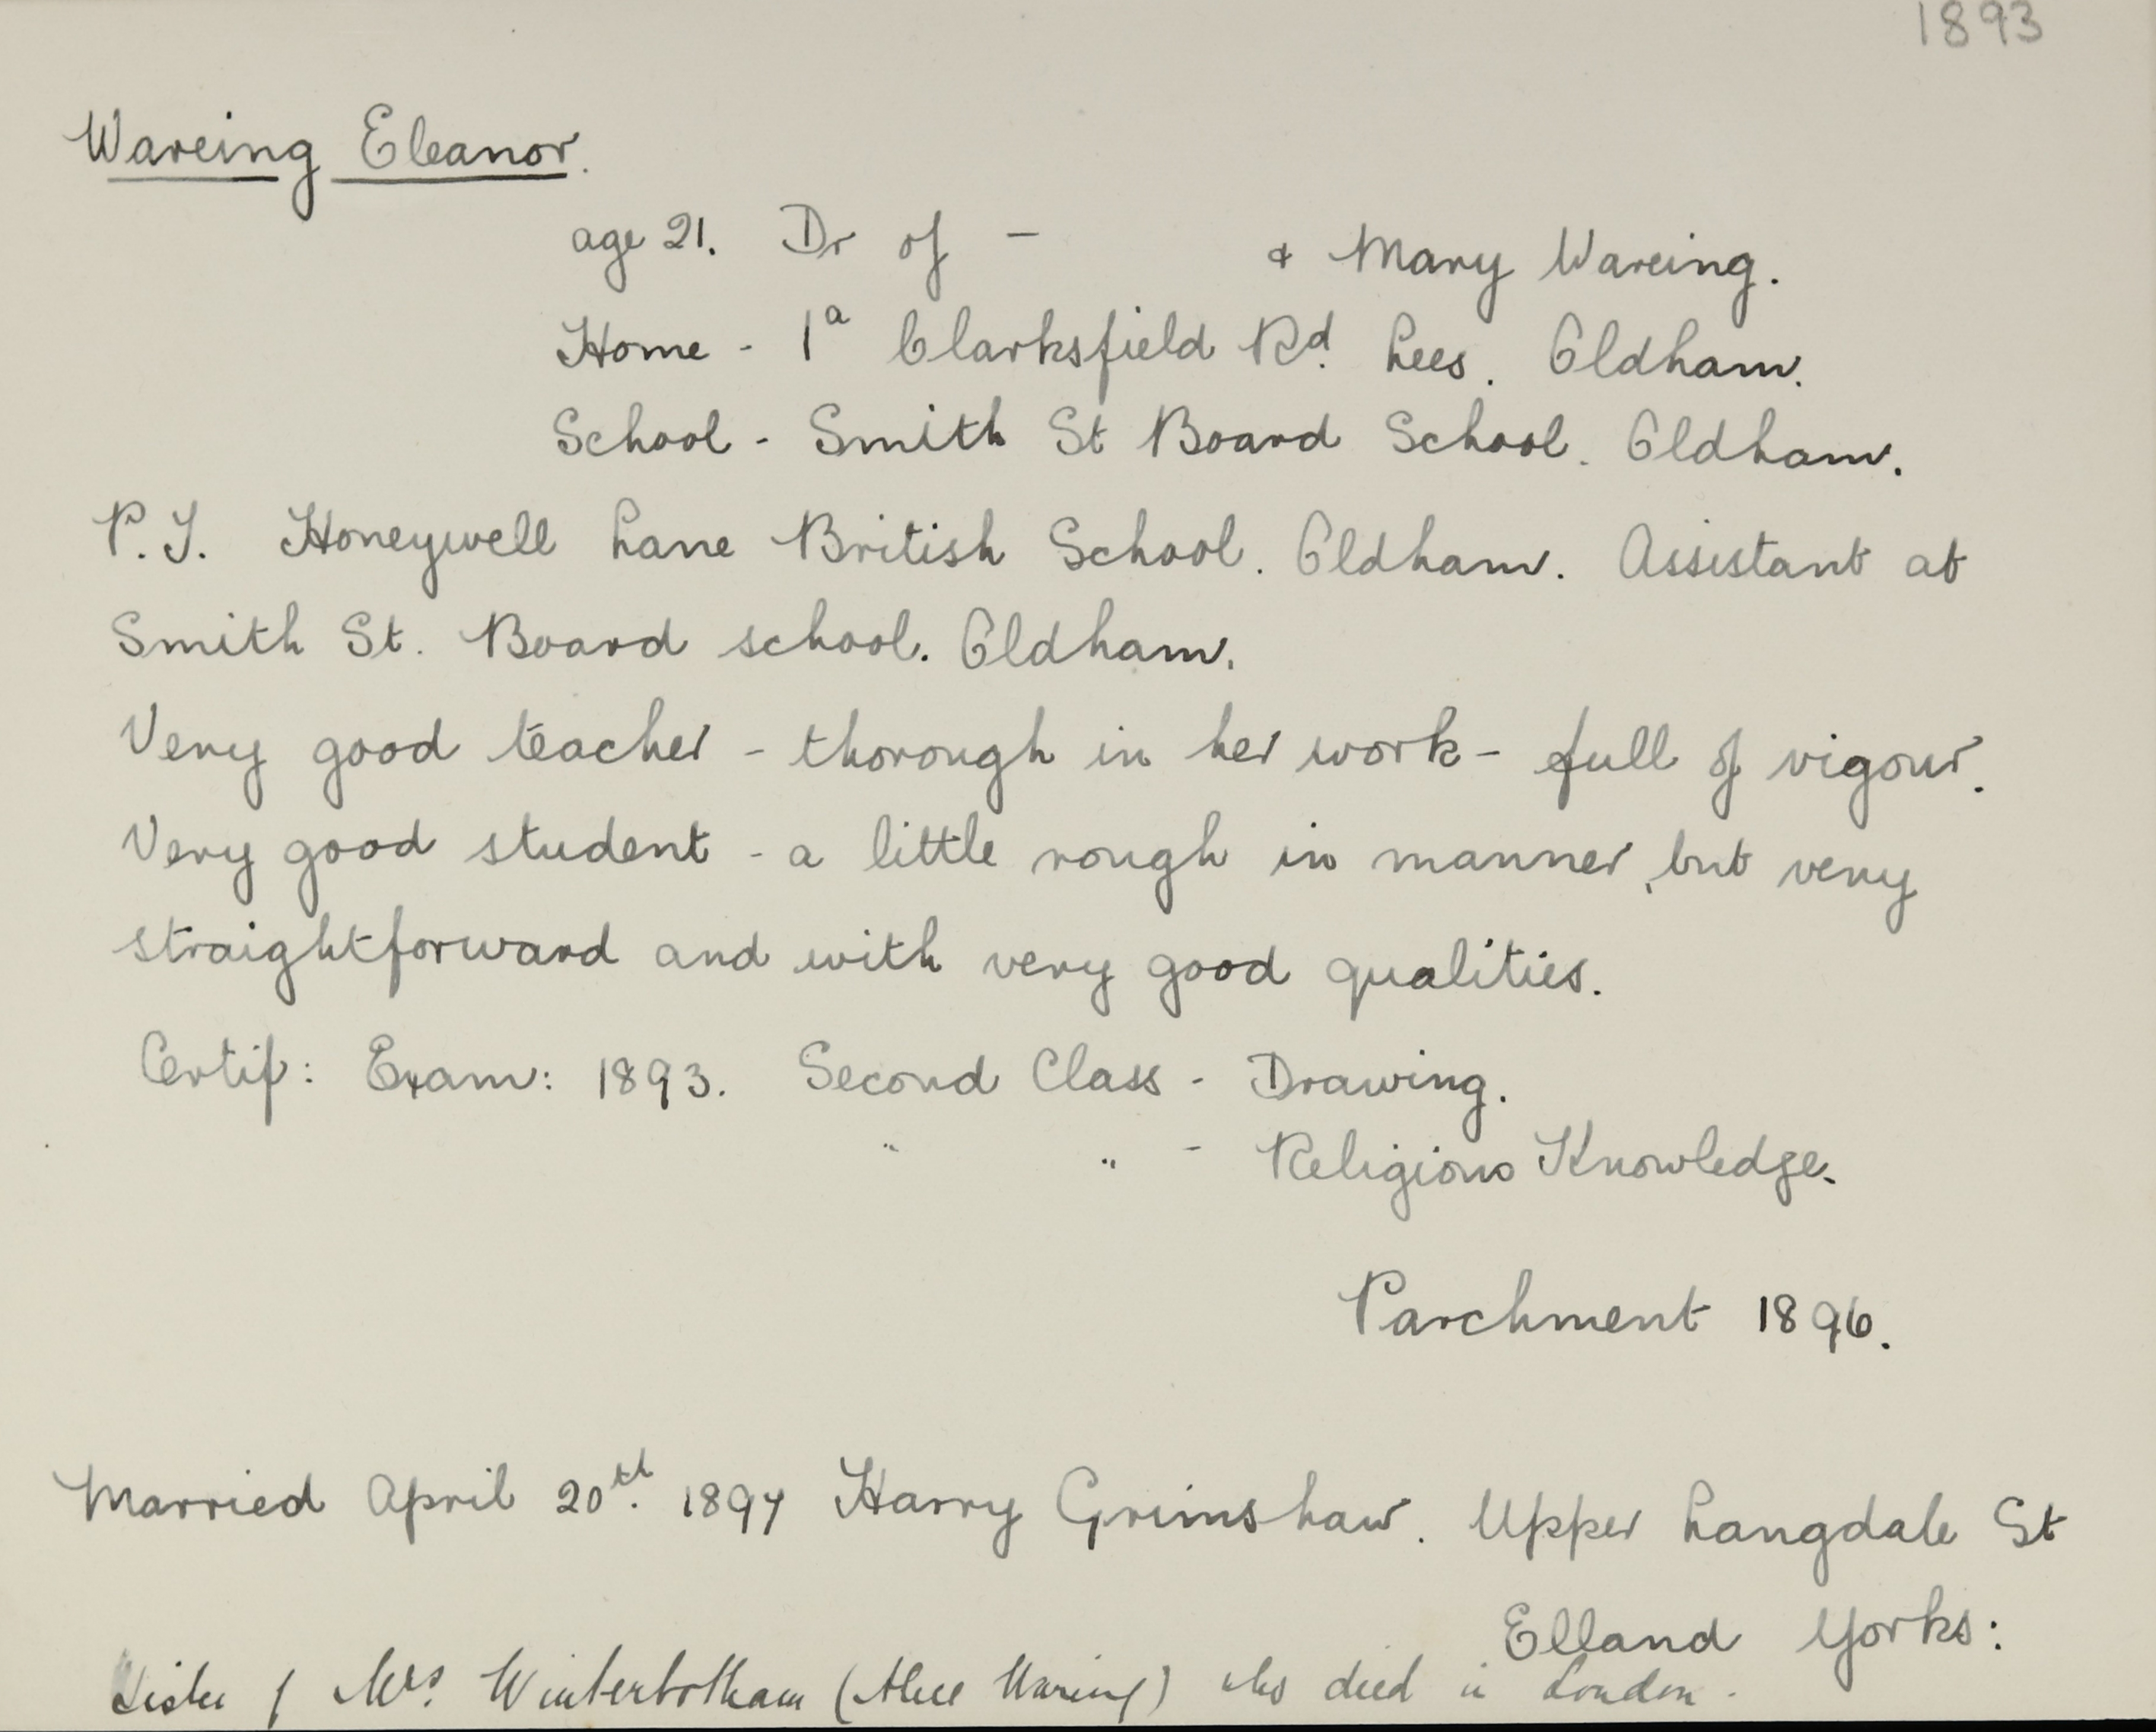 1893
Wareing Eleanor.
age 21. Dr of - & Mary Wareing.
Home - 1a Clarksfield Rd. Lees. Oldham.
School - Smith St Board School. Oldham.
P.T. Honeywell Lane British School. Oldham. Assistant at
Smith St. Board school. Oldham.
Very good teacher - thorough in her work - full of vigour.
Very good student - a little rough in manner, but very
straightforward and with very good qualities.
Certif: Exam: 1893. Second Class - Drawing.
" " - Religious Knowledge.
Parchment 1896.
Married April 20th. 1897 Harry Grimshaw. Upper Langdale St
Elland Yorks:
Sister of Mrs. Winterbotham (Alice Waring) who died in London.